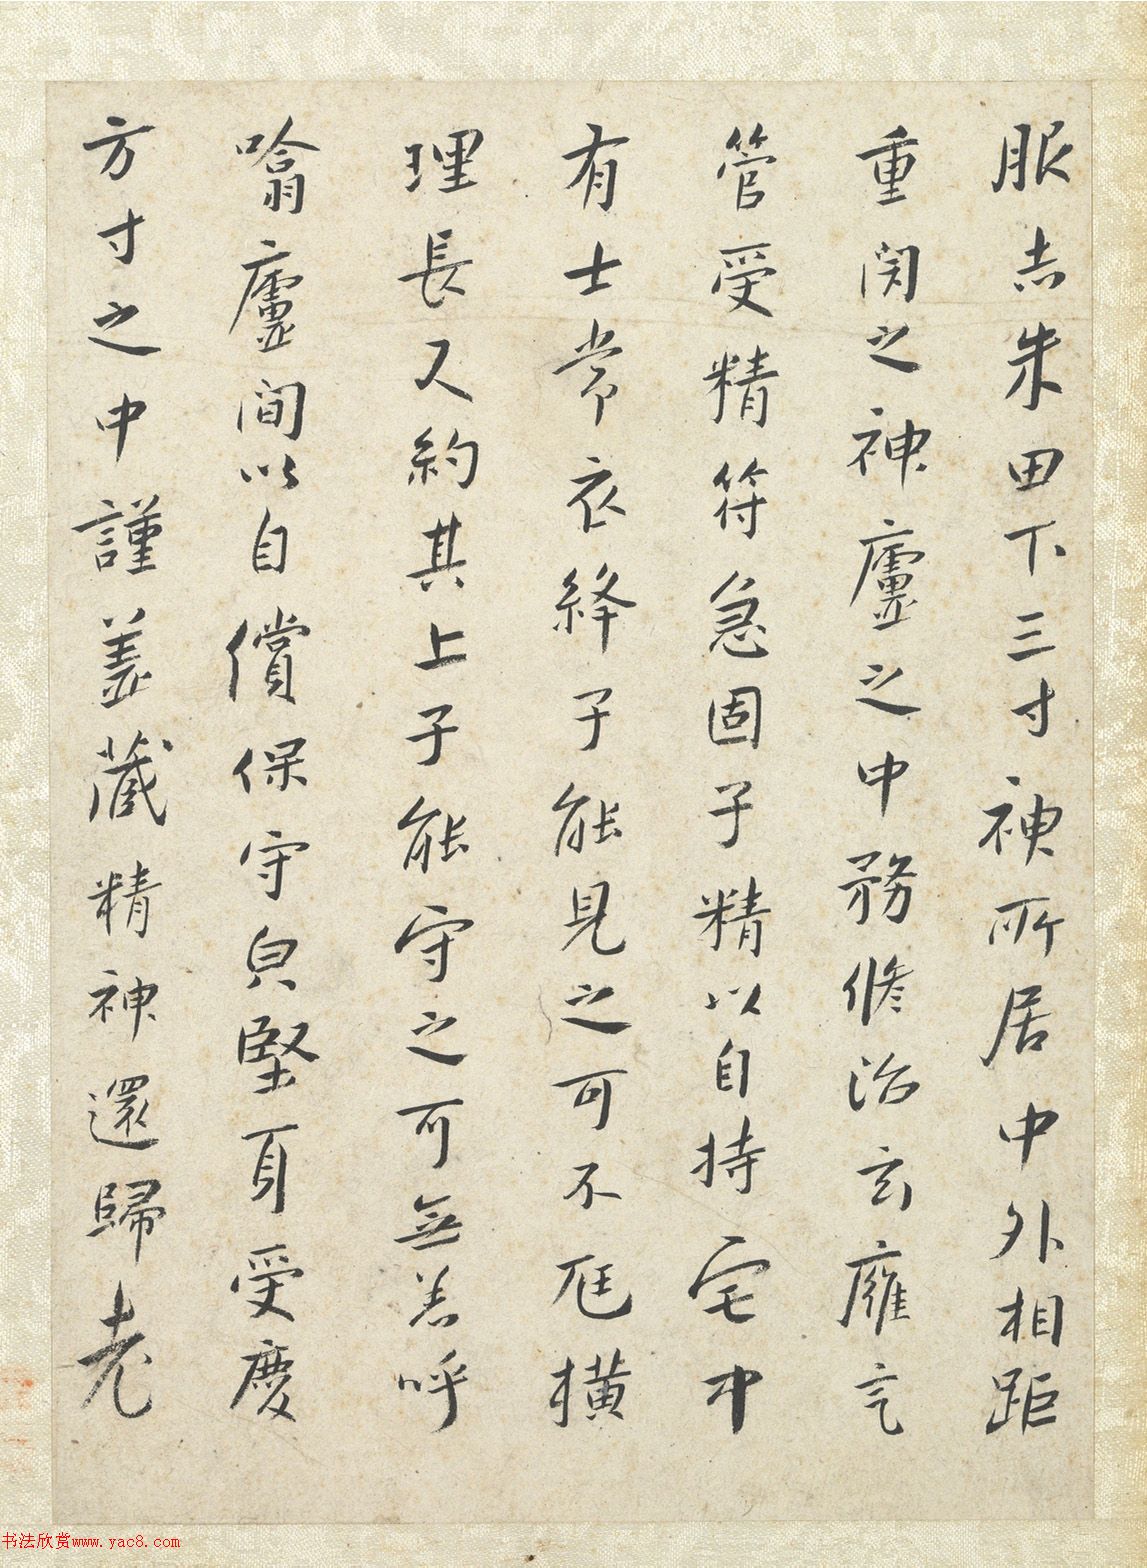 服赤朱田下三寸神所居中外相距
重閉之神廬之中務脩治玄廱气
管受精符急固子精以自持宅中
有士常衣絳子能見之可不尫横
理長尺約其上子能守之可無恙呼
噏廬間以自償保守皃堅身受慶
方寸之中謹蓋藏精神還歸老
书法欣赏www.yac8.com